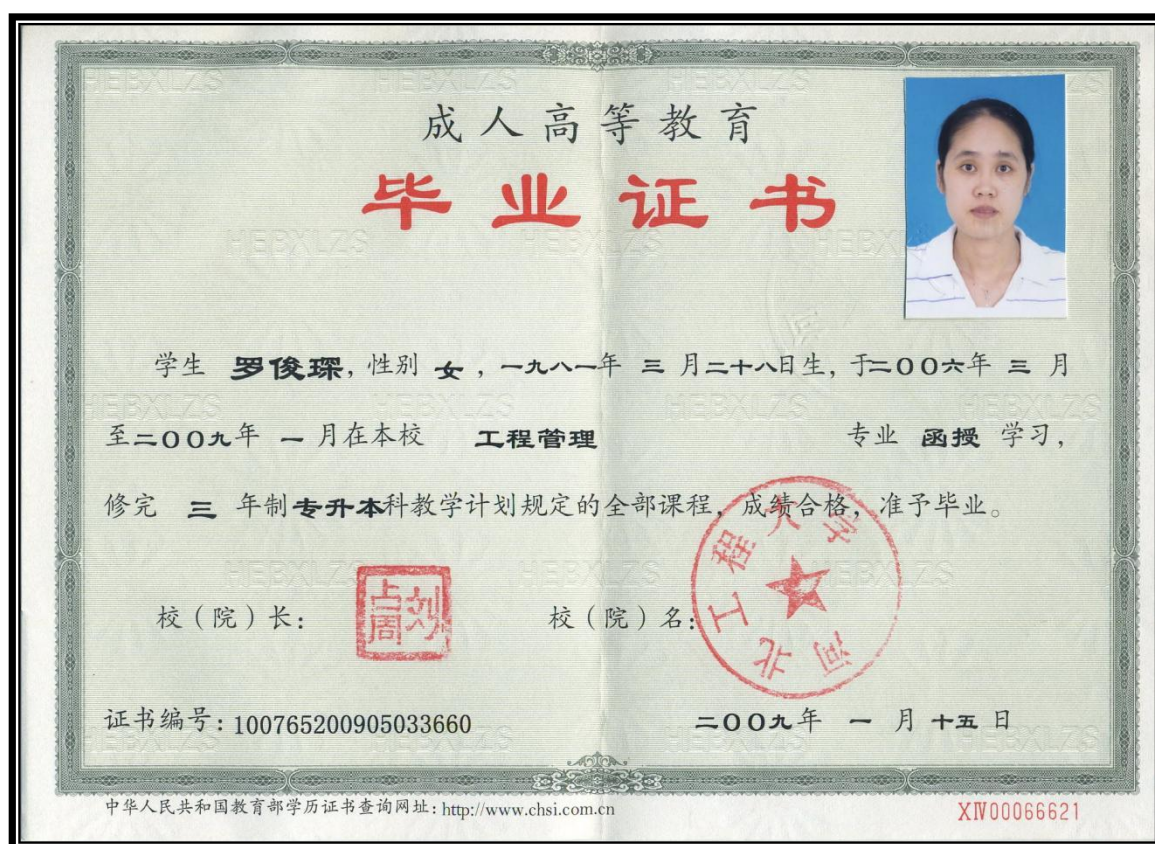 成人高等教育
毕业证书
学生 罗俊琛, 性别 女, 一九八一年 三 月二十八日生, 于二〇〇六年 三 月
至二〇〇九年 一 月在本校 工程管理 专业 函授 学习,
修完 三 年制专升本科教学计划规定的全部课程, 成绩合格, 准予毕业。
校(院)长: 刘占周 校(院)名: 河北工程大学
证书编号: 100765200905033660 二〇〇九年 一 月 十五 日
中华人民共和国教育部学历证书查询网址: http://www.chsi.com.cn XIV00066621
HEBXLZS